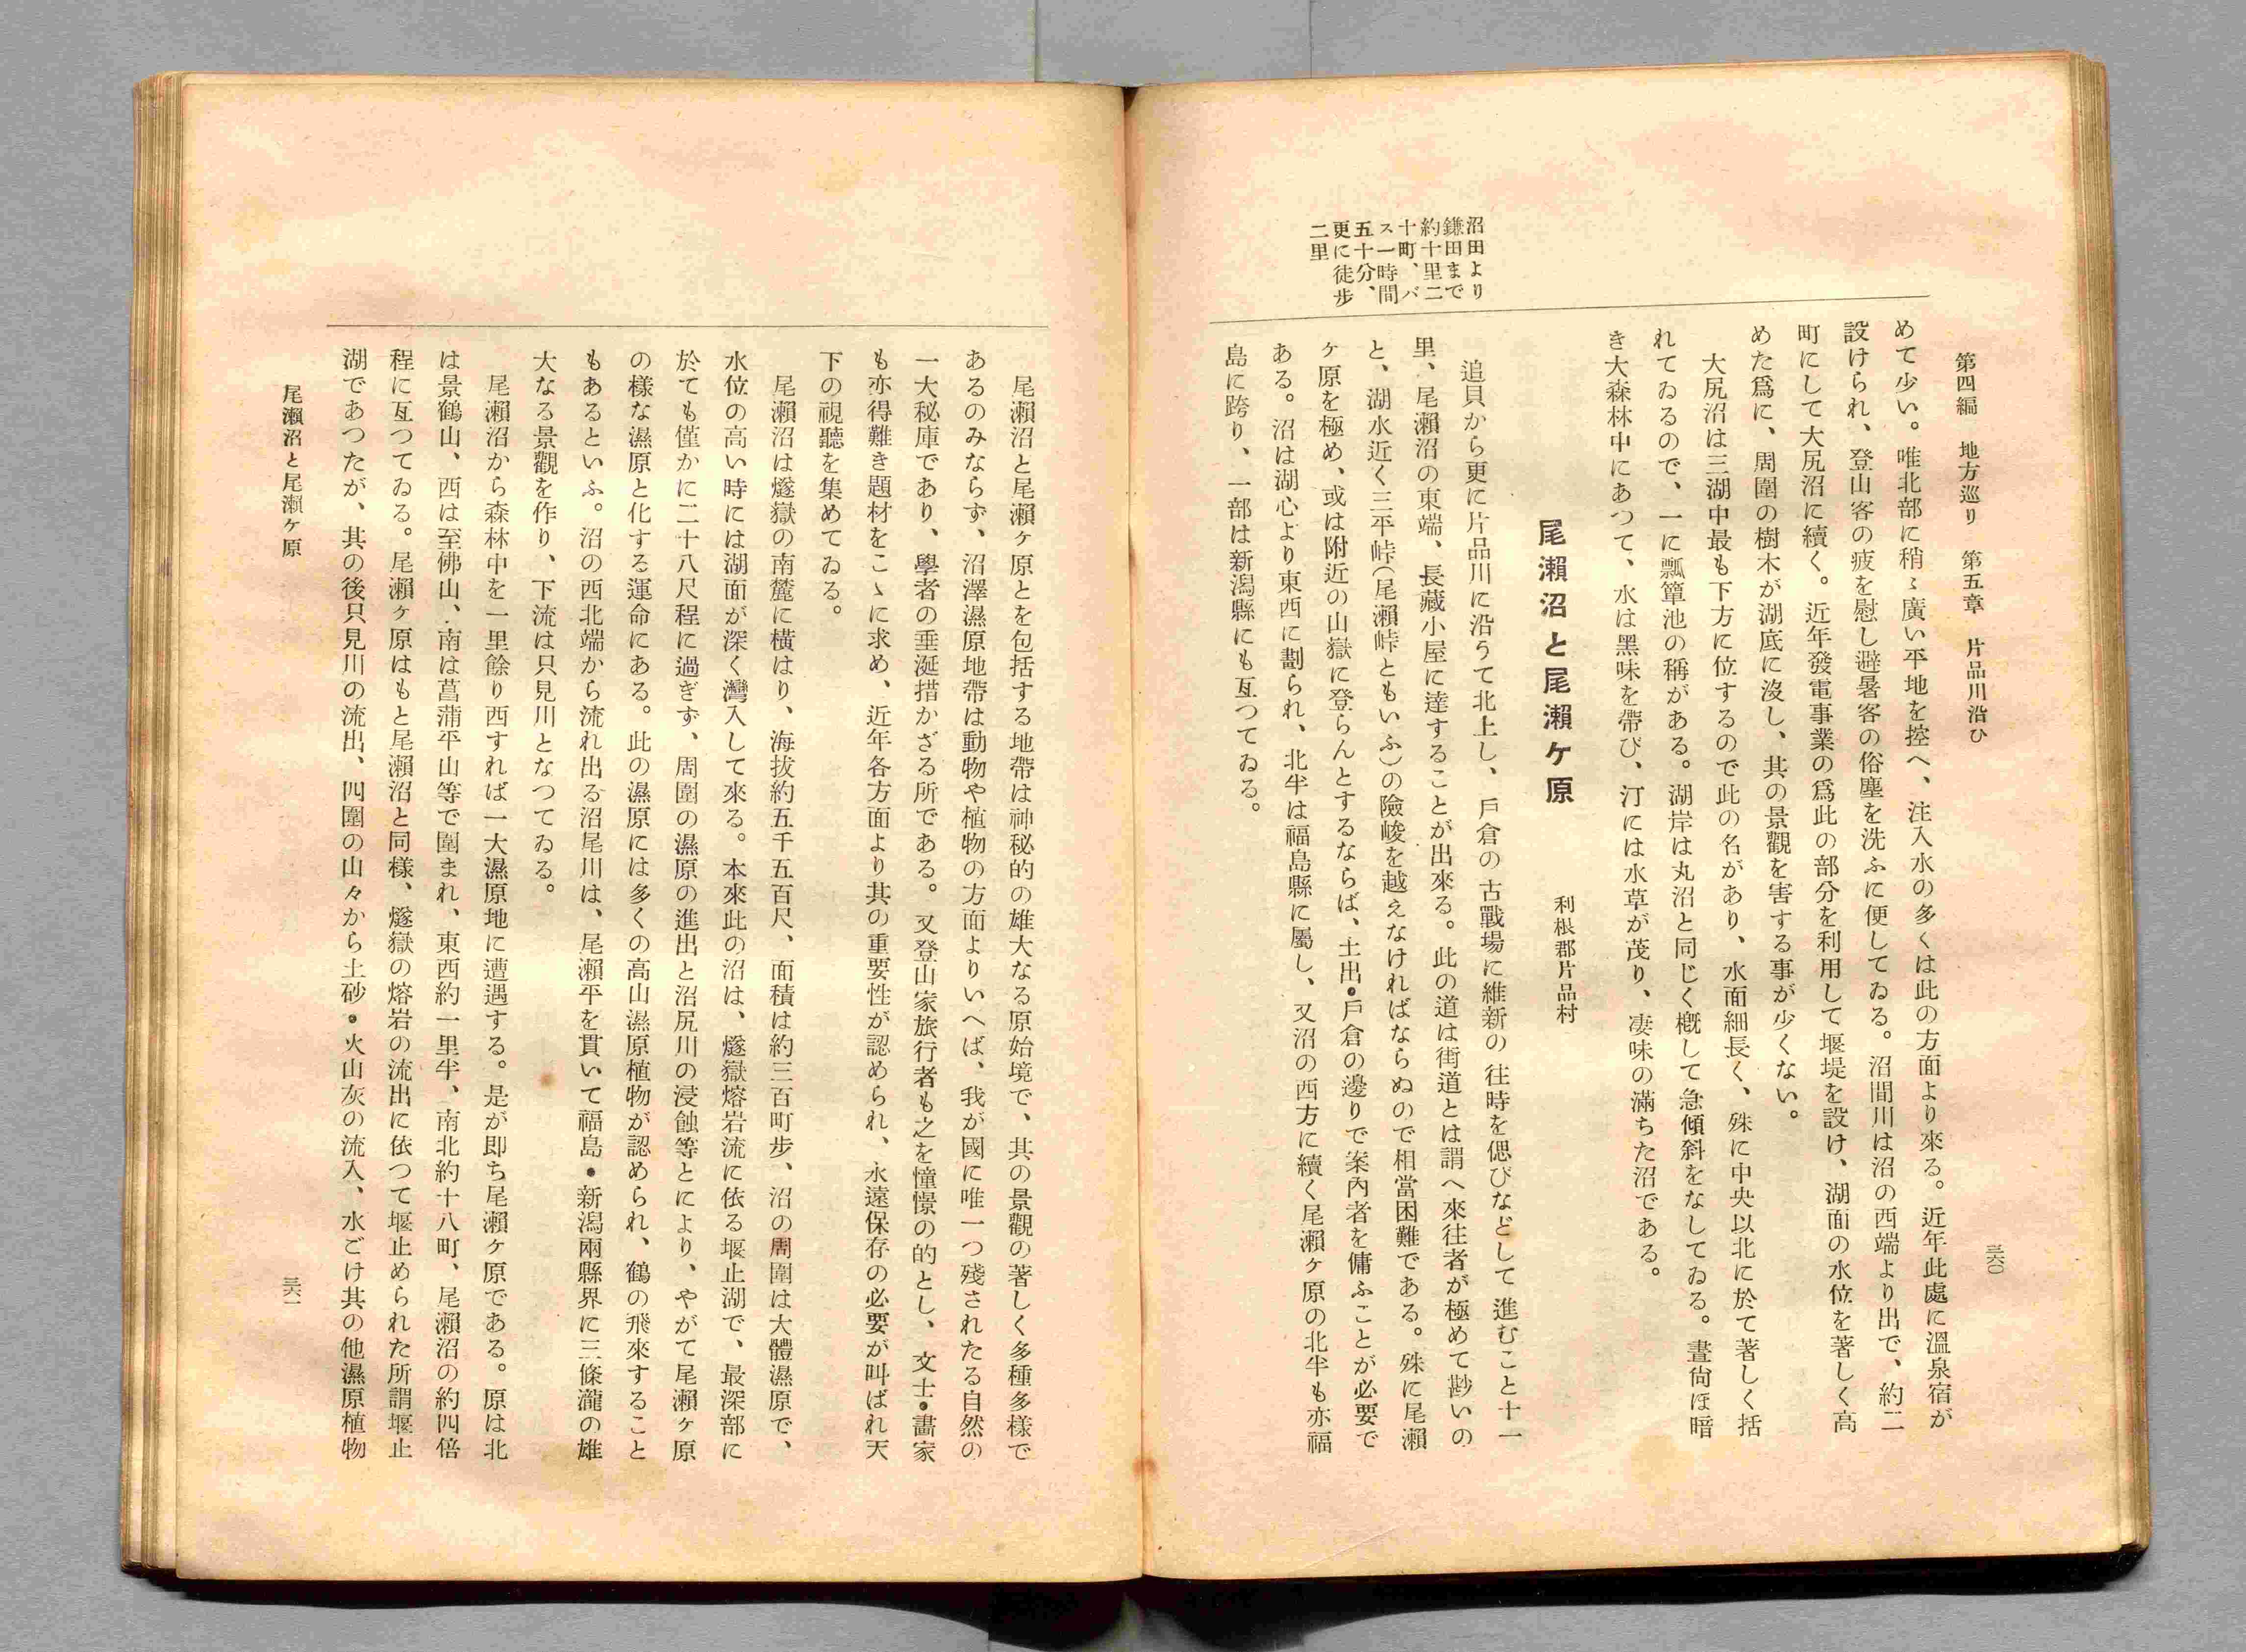 第四編　地方巡り　第五章　片品川沿ひ
三六〇
めて少い。唯北部に稍〻廣い平地を控へ、注入水の多くは此の方面より來る。近年此處に溫泉宿が
設けられ、登山客の疲を慰し避暑客の俗塵を洗ふに便してゐる。沼間川は沼の西端より出で、約二
町にして大尻沼に續く。近年發電事業の爲此の部分を利用して堰堤を設け、湖面の水位を著しく高
めた爲に、周圍の樹木が湖底に沒し、其の景觀を害する事が少くない。
大尻沼は三湖中最も下方に位するので此の名があり、水面細長く、殊に中央以北に於て著しく括
れてゐるので、一に瓢簞池の稱がある。湖岸は丸沼と同じく槪して急傾斜をなしてゐる。晝尙ほ暗
き大森林中にあつて、水は黑味を帶び、汀には水草が茂り、凄味の滿ちた沼である。
尾瀨沼と尾瀨ケ原
利根郡片品村
沼田より
鎌田まで
約十里二
十町、バ
ス一時間
五十分、
更に徒步
二里
追貝から更に片品川に沿うて北上し、戶倉の古戰場に維新の往時を偲びなどして進むこと十一
里、尾瀨沼の東端、長藏小屋に達することが出來る。此の道は街道とは謂へ來往者が極めて尠いの
と、湖水近く三平峠(尾瀨峠ともいふ)の險峻を越えなければならぬので相當困難である。殊に尾瀨
ヶ原を極め、或は附近の山嶽に登らんとするならば、土出・戶倉の邊りで案內者を傭ふことが必要で
ある。沼は湖心より東西に劃られ、北半は福島縣に屬し、又沼の西方に續く尾瀨ヶ原の北半も亦福
島に跨り、一部は新潟縣にも亙つてゐる。
尾瀨沼と尾瀨ヶ原とを包括する地帶は神秘的の雄大なる原始境で、其の景觀の著しく多種多樣で
あるのみならず、沼澤濕原地帶は動物や植物の方面よりいへば、我が國に唯一つ殘されたる自然の
一大秘庫であり、學者の垂涎措かざる所である。又登山家旅行者も之を憧憬の的とし、文士・畫家
も亦得難き題材をこゝに求め、近年各方面より其の重要性が認められ、永遠保存の必要が叫ばれ天
下の視聽を集めてゐる。
尾瀨沼は燧嶽の南麓に橫はり、海拔約五千五百尺、面積は約三百町步、沼の周圍は大體濕原で、
水位の高い時には湖面が深く灣入して來る。本來此の沼は、燧嶽熔岩流に依る堰止湖で、最深部に
於ても僅かに二十八尺程に過ぎず、周圍の濕原の進出と沼尻川の浸蝕等とにより、やがて尾瀨ヶ原
の樣な濕原と化する運命にある。此の濕原には多くの高山濕原植物が認められ、鶴の飛來すること
もあるといふ。沼の西北端から流れ出る沼尾川は、尾瀨平を貫いて福島・新潟兩縣界に三條瀧の雄
大なる景觀を作り、下流は只見川となつてゐる。
尾瀨沼から森林中を一里餘り西すれば一大濕原地に遭遇する。是が即ち尾瀨ヶ原である。原は北
は景鶴山、西は至佛山、南は菖蒲平山等で圍まれ、東西約一里半、南北約十八町、尾瀨沼の約四倍
程に亙つてゐる。尾瀨ヶ原はもと尾瀨沼と同樣、燧嶽の熔岩の流出に依つて堰止められた所謂堰止
湖であつたが、其の後只見川の流出、四圍の山々から土砂・火山灰の流入、水ごけ其の他濕原植物
尾瀨沼と尾瀨ヶ原
三六一